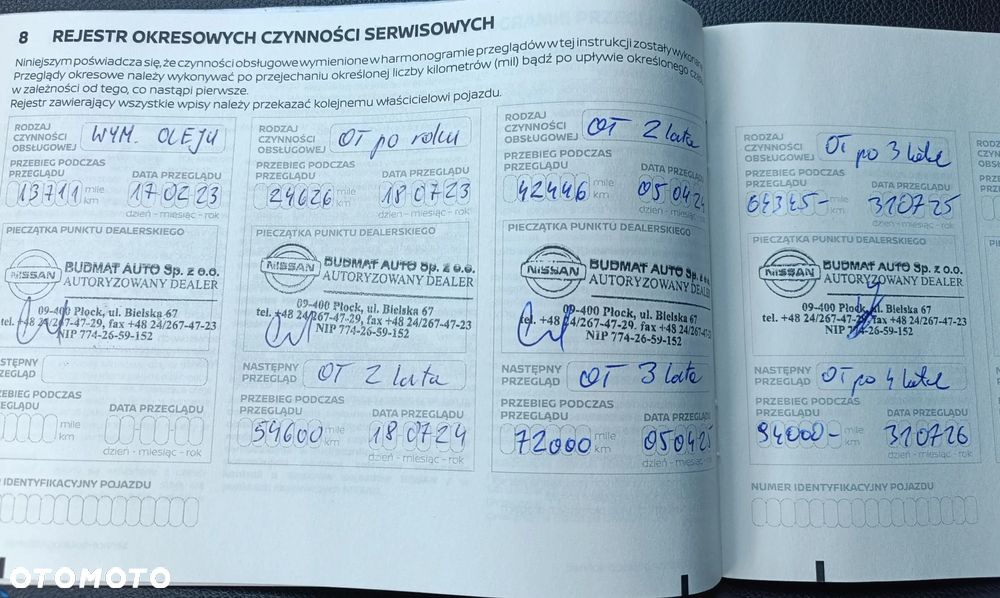 8 REJESTR OKRESOWYCH CZYNNOŚCI SERWISOWYCH
Niniejszym poświadcza się, że czynności obsługowe wymienione w harmonogramie przeglądów w tej instrukcji zostały wykonane.
Przeglądy okresowe należy wykonywać po przejechaniu określonej liczby kilometrów (mil) bądź po upływie określonego czasu,
w zależności od tego, co nastąpi pierwsze.
Rejestr zawierający wszystkie wpisy należy przekazać kolejnemu właścicielowi pojazdu.
RODZAJ CZYNNOŚCI OBSŁUGOWEJ WYM. OLEJU
PRZEBIEG PODCZAS PRZEGLĄDU DATA PRZEGLĄDU
13711 mile km 170223
dzień - miesiąc - rok
PIECZĄTKA PUNKTU DEALERSKIEGO
NISSAN
BUDMAT AUTO Sp. z o.o.
AUTORYZOWANY DEALER
09-400 Płock, ul. Bielska 67
tel. +48 24/267-47-29, fax +48 24/267-47-23
NIP 774-26-59-152
STĘPNY
ZEGLĄD
EBIEG PODCZAS
EGLĄDU DATA PRZEGLĄDU
mile km
dzień - miesiąc - rok
IDENTYFIKACYJNY POJAZDU
RODZAJ CZYNNOŚCI OBSŁUGOWEJ OT po roku
PRZEBIEG PODCZAS PRZEGLĄDU DATA PRZEGLĄDU
24626 mile km 180723
dzień - miesiąc - rok
PIECZĄTKA PUNKTU DEALERSKIEGO
NISSAN
BUDMAT AUTO Sp. z o.o.
AUTORYZOWANY DEALER
09-400 Płock, ul. Bielska 67
tel. +48 24/267-47-29, fax +48 24/267-47-23
NIP 774-26-59-152
NASTĘPNY PRZEGLĄD OT 2 lata
PRZEBIEG PODCZAS PRZEGLĄDU DATA PRZEGLĄDU
54600 mile km 180724
dzień - miesiąc - rok
RODZAJ CZYNNOŚCI OBSŁUGOWEJ OT 2 lata
PRZEBIEG PODCZAS PRZEGLĄDU DATA PRZEGLĄDU
42446 mile km 050424
dzień - miesiąc - rok
PIECZĄTKA PUNKTU DEALERSKIEGO
NISSAN
BUDMAT AUTO Sp. z o.o.
AUTORYZOWANY DEALER
09-400 Płock, ul. Bielska 67
tel. +48 24/267-47-29. fax +48 24/267-47-23
NIP 774-26-59-152
NASTĘPNY PRZEGLĄD OT 3 lata
PRZEBIEG PODCZAS PRZEGLĄDU DATA PRZEGLĄDU
72000 mile km 050425
dzień - miesiąc - rok
RODZAJ CZYNNOŚCI OBSŁUGOWEJ OT po 3 latach
PRZEBIEG PODCZAS PRZEGLĄDU DATA PRZEGLĄDU
64345- mile km 310725
dzień - miesiąc - rok
PIECZĄTKA PUNKTU DEALERSKIEGO
NISSAN
BUDMAT AUTO Sp. z o.o.
AUTORYZOWANY DEALER
09-400 Płock, ul. Bielska 67
tel. +48 24/267-47-29, fax +48 24/267-47-23
NIP 774-26-59-152
NASTĘPNY PRZEGLĄD OT po 4 latach
PRZEBIEG PODCZAS PRZEGLĄDU DATA PRZEGLĄDU
94000- mile km 310726
dzień - miesiąc - rok
NUMER IDENTYFIKACYJNY POJAZDU
OTOMOTO